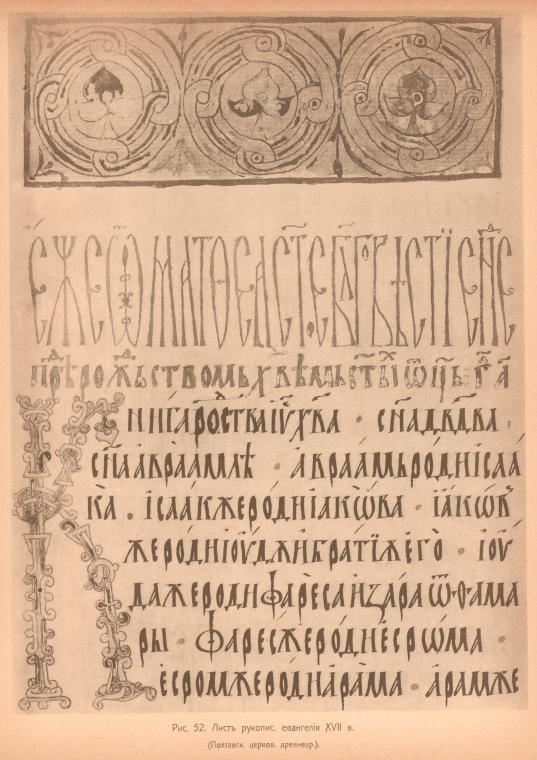 ЕЖЕ Ѿ МАТѲЕА СТ͠Е БЛ͠ГОВѢСТЇЕ
ПРѢ РОЖЬСТВОМЬ Х҃ВѢМЬ
КНИГА РОСТВА І҃У Х҃ВА · СН҃А ДВ҃ДВА ·
СН҃А АВРААМЛѢ · АВРААМЬ РОДИ ІСАА
КА . ІСААК ЖЕ РОДИ ІАКѠВА · ІАКѠВ
ЖЕ РОДИ ІОУДꙊ И БРАТЇЯ ЕГО · ІОУ
ДА ЖЕ РОДИ ФАРЕСА И ЗАРА Ѿ ѲАМА
РЫ · ФАРЕС ЖЕ РОДИ ЕСРѠМА ·
ЕСРОМ ЖЕ РОДИ АРАМА · АРАМ ЖЕ
Рис. 52. Листъ рукопис. евангелія XVII в.
(Полтавск. церков. древнехр.).